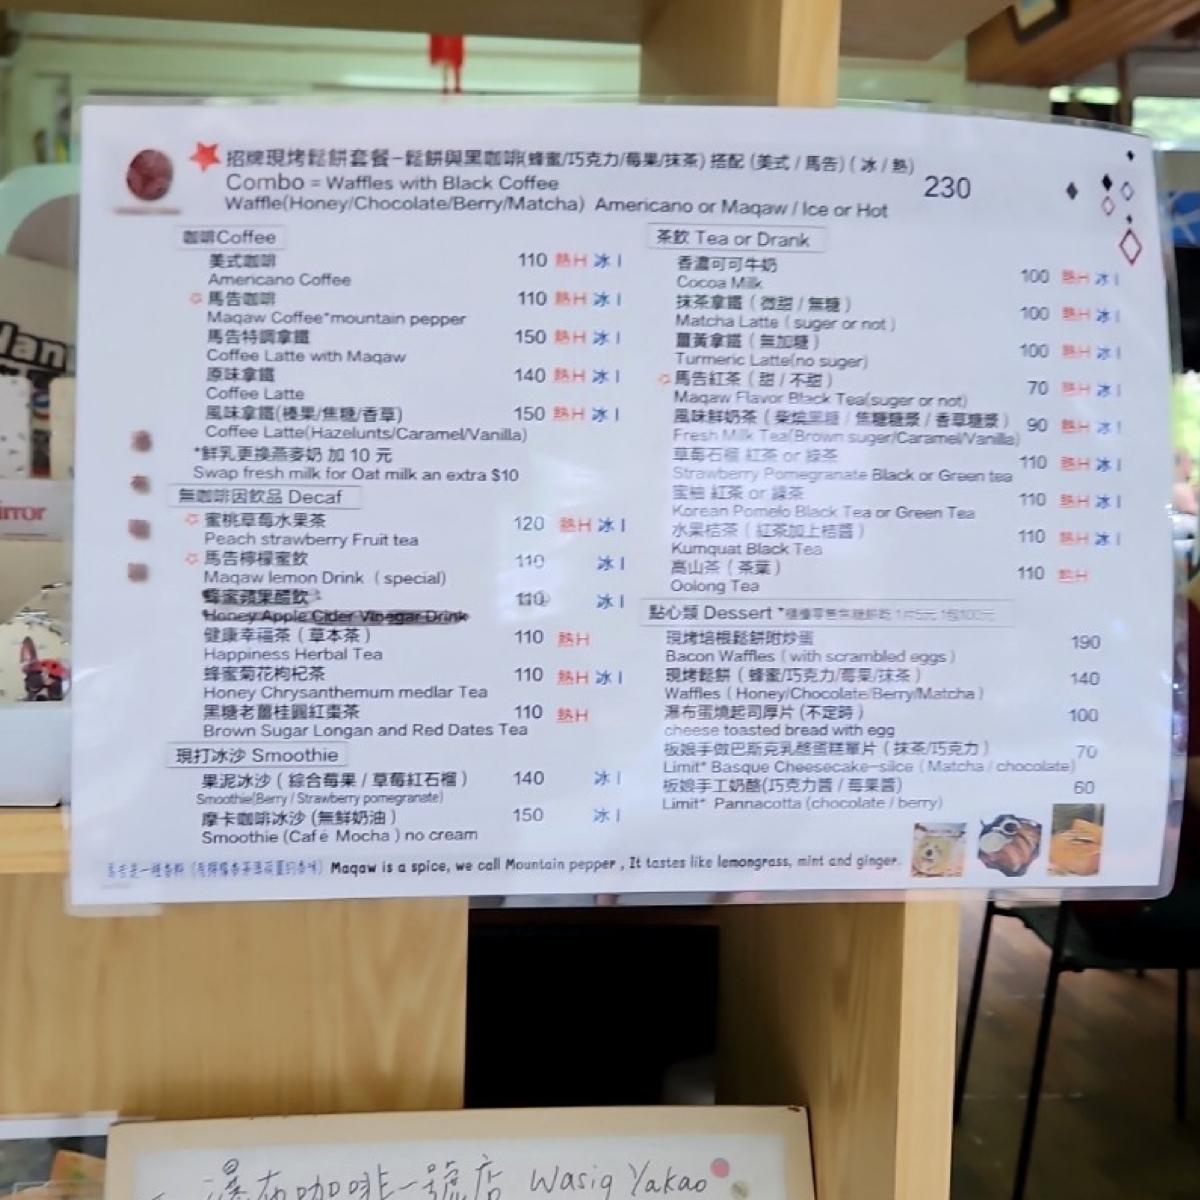 招牌現烤鬆餅套餐-鬆餅與黑咖啡(蜂蜜/巧克力/莓果/抹茶) 搭配 (美式 / 馬告) ( 冰 / 熱)
Combo = Waffles with Black Coffee
230
Waffle(Honey/Chocolate/Berry/Matcha) Americano or Maqaw / Ice or Hot
咖啡Coffee
美式咖啡 110 熱H 冰 I
Americano Coffee
馬告咖啡 110 熱H 冰 I
Maqaw Coffee*mountain pepper
馬告特調拿鐵 150 熱H 冰 I
Coffee Latte with Maqaw
原味拿鐵 140 熱H 冰 I
Coffee Latte
風味拿鐵(榛果/焦糖/香草) 150 熱H 冰 I
Coffee Latte(Hazelunts/Caramel/Vanilla)
*鮮乳更換燕麥奶 加 10 元
Swap fresh milk for Oat milk an extra $10
無咖啡因飲品 Decaf
蜜桃草莓水果茶 120 熱H 冰 I
Peach strawberry Fruit tea
馬告檸檬蜜飲 110 冰 I
Maqaw lemon Drink ( special)
蜂蜜蘋果醋飲 110 冰 I
Honey Apple Cider Vinegar Drink
健康幸福茶 ( 草本茶 ) 110 熱H
Happiness Herbal Tea
蜂蜜菊花枸杞茶 110 熱H 冰 I
Honey Chrysanthemum medlar Tea
黑糖老薑桂圓紅棗茶 110 熱H
Brown Sugar Longan and Red Dates Tea
現打冰沙 Smoothie
果泥冰沙 ( 綜合莓果 / 草莓紅石榴 ) 140 冰 I
Smoothie(Berry / Strawberry pomegranate)
摩卡咖啡冰沙 (無鮮奶油 ) 150 冰 I
Smoothie (Café Mocha ) no cream
茶飲 Tea or Drank
香濃可可牛奶 100 熱H 冰 I
Cocoa Milk
抹茶拿鐵 ( 微甜 / 無糖 ) 100 熱H 冰 I
Matcha Latte ( suger or not )
薑黃拿鐵 ( 無加糖 ) 100 熱H 冰 I
Turmeric Latte(no suger)
馬告紅茶 ( 甜 / 不甜 ) 70 熱H 冰 I
Maqaw Flavor Black Tea(suger or not)
風味鮮奶茶 ( 柴燒黑糖 / 焦糖糖漿 / 香草糖漿 ) 90 熱H 冰 I
Fresh Milk Tea(Brown suger/Caramel/Vanilla)
草莓石榴 紅茶 or 綠茶 110 熱H 冰 I
Strawberry Pomegranate Black or Green tea
蜜柚 紅茶 or 綠茶 110 熱H 冰 I
Korean Pomelo Black Tea or Green Tea
水果桔茶 ( 紅茶加上桔醬 ) 110 熱H 冰 I
Kumquat Black Tea
高山茶 ( 茶葉 ) 110 熱H
Oolong Tea
點心類 Dessert
現烤培根鬆餅附炒蛋 190
Bacon Waffles ( with scrambled eggs )
現烤鬆餅 ( 蜂蜜/巧克力/莓果/抹茶 ) 140
Waffles ( Honey/Chocolate/Berry/Matcha )
瀑布蛋燒起司厚片 (不定時 ) 100
cheese toasted bread with egg
板娘手做巴斯克乳酪蛋糕單片 ( 抹茶/巧克力 ) 70
Limit* Basque Cheesecake-slice ( Matcha / chocolate)
板娘手工奶酪(巧克力醬 / 莓果醬) 60
Limit* Pannacotta (chocolate / berry)
Maqaw is a spice, we call Mountain pepper , It tastes like lemongrass, mint and ginger.
瀑布咖啡一號店 Wasiq Yakao